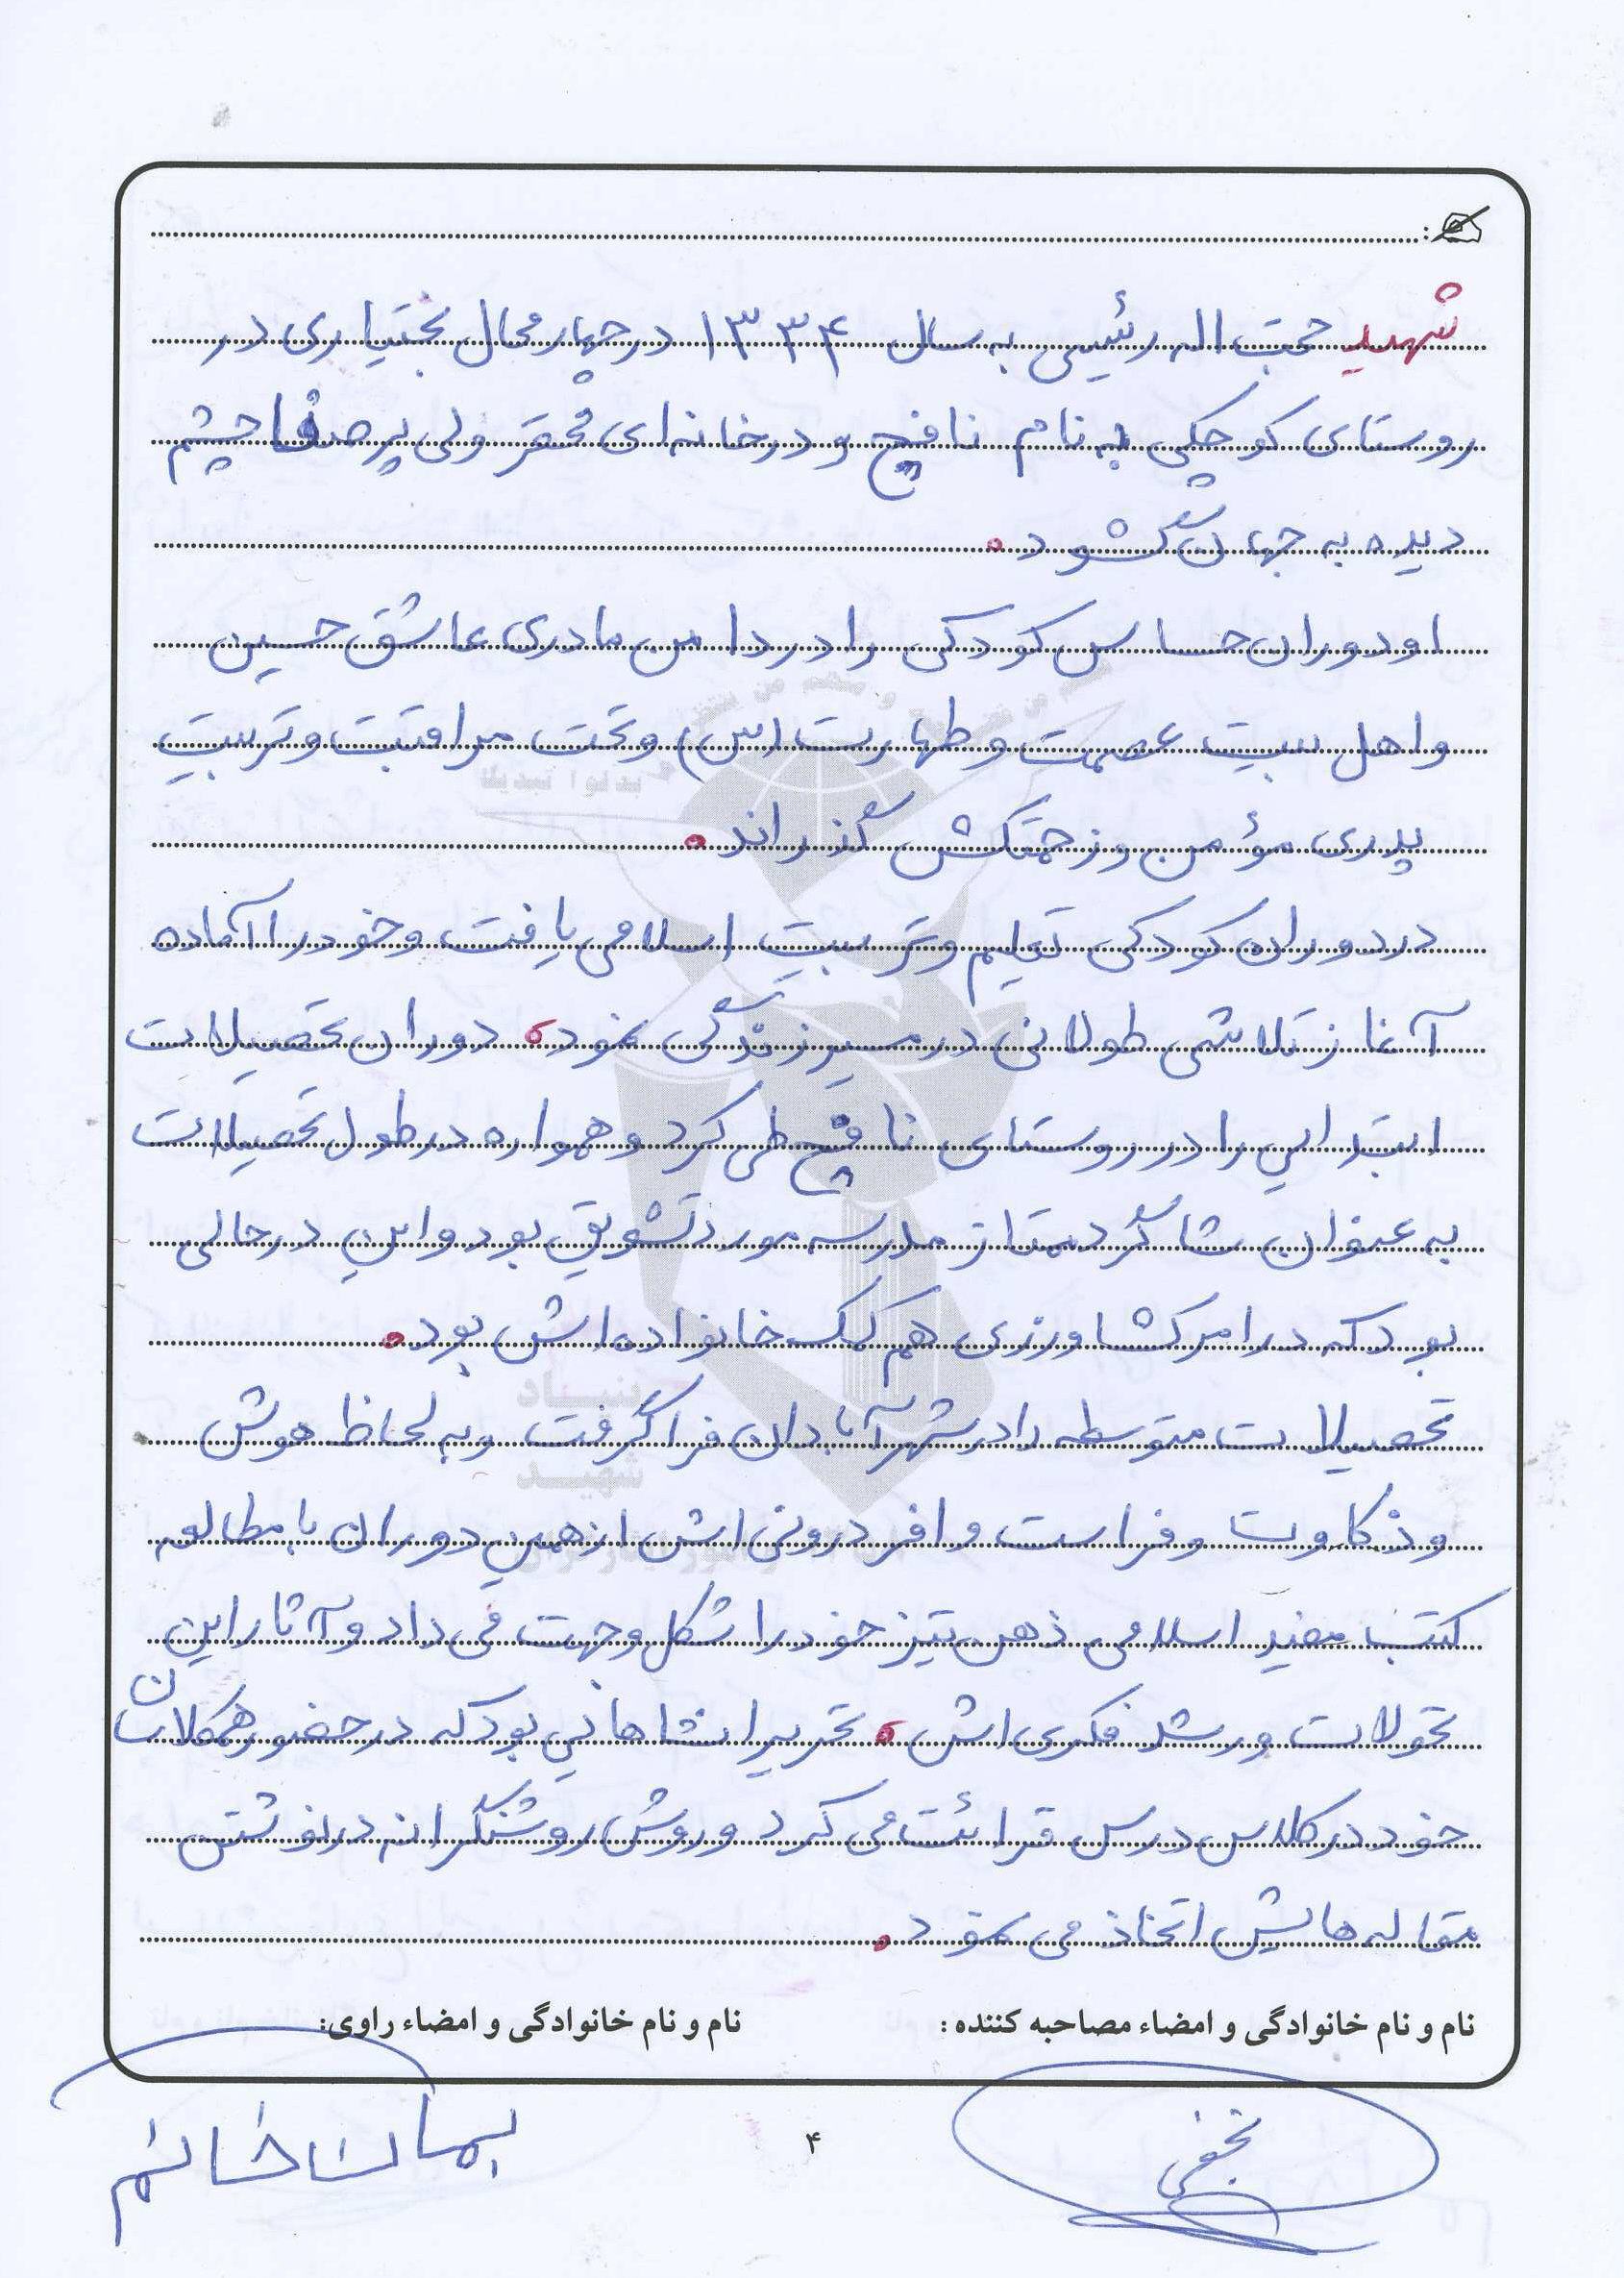 شهید حجت اله رئیسی به سال ۱۳۳۴ در چهارمحال بختیاری در
روستای کوچکی به نام نافچ و در خانه‌ای محقر ولی پرصفا چشم
دیده به جهان گشود.
او دوران حساس کودکی را در دامن مادری عاشق حسین
و اهل بیت عصمت و طهارت (س) و تحت مراقبت و تربیت
پدری مؤمن و زحمتکش گذراند.
در دوران کودکی تعلیم و تربیت اسلامی یافت و خود را آماده
آغاز تلاشی طولانی در مسیر زندگی نمود. دوران تحصیلات
ابتدایی را در روستای نافچ طی کرد و همواره در طول تحصیلات
به عنوان شاگرد ممتاز مدرسه مورد تشویق بود و این درحالی
بود که در امر کشاورزی هم کمک خانواده‌اش بود.
تحصیلات متوسطه را در شهر آبادان فرا گرفت و به لحاظ هوش
و ذکاوت و فراست وافر درونی اش از همین دوران با مطالعه
کتب مفید اسلامی ذهن تیز خود را شکل و جهت می داد و آثار این
تحولات و رشد فکری اش، تحریر انشاهایی بود که در حضور همکلاسان
خود در کلاس درس قرائت می کرد و روش روشنگرانه در نوشتن
مقاله هایش اتخاذ می نمود.
نام و نام خانوادگی و امضاء مصاحبه کننده: نام و نام خانوادگی و امضاء راوی:
نجفی
۴
بنیاد
شهید